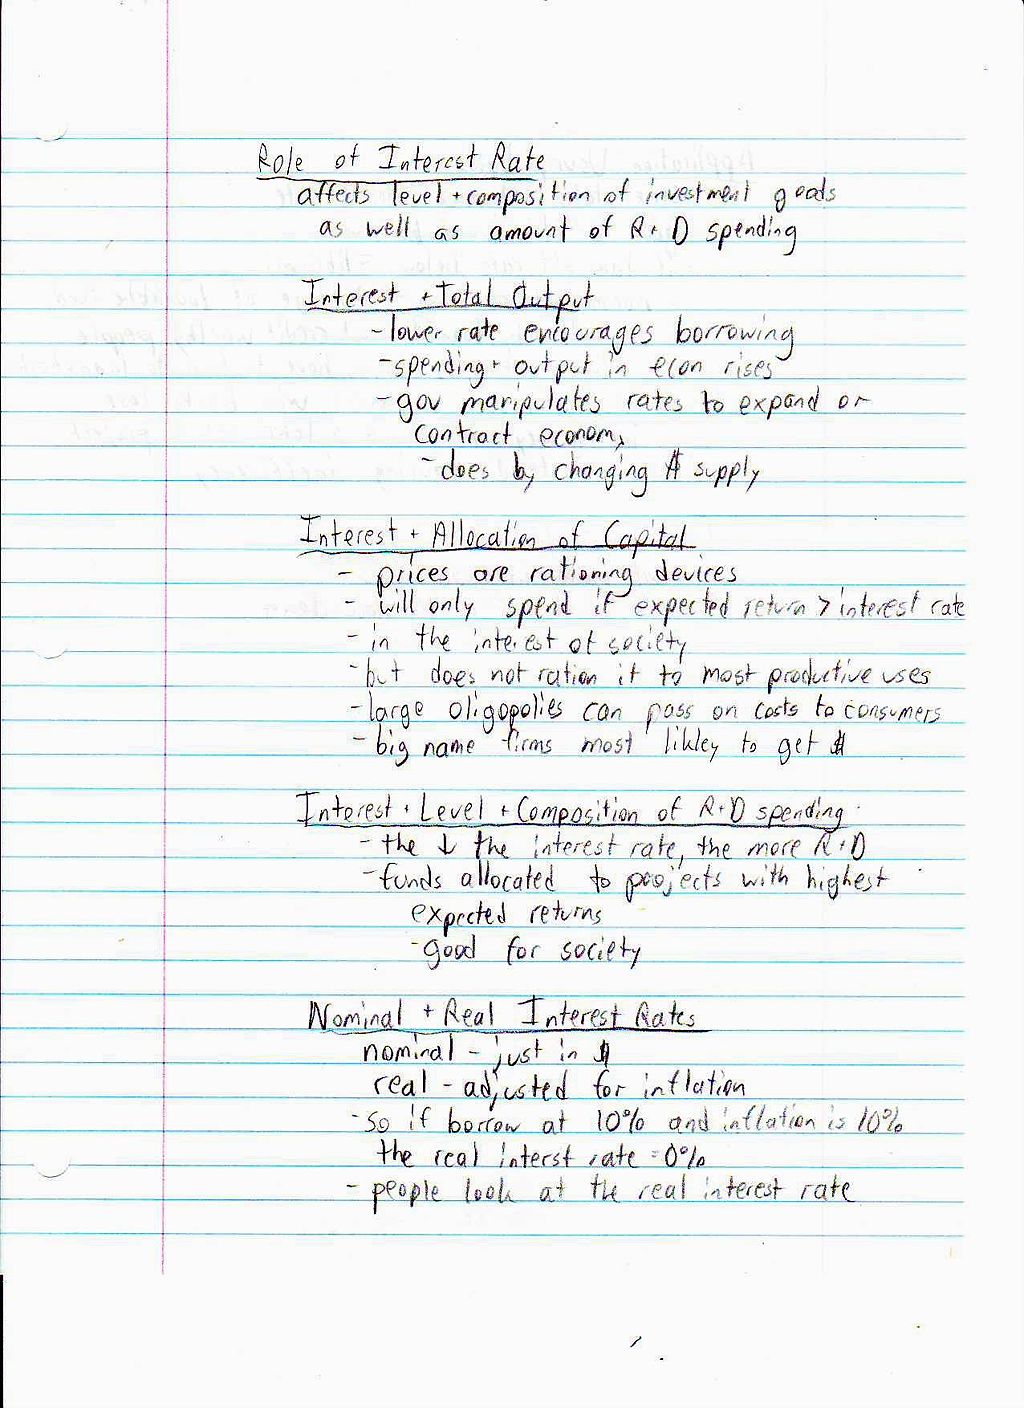 Role of Interest Rate
affects level + composition of investment goods
as well as amount of R+D spending
Interest + Total Output
- lower rate encourages borrowing
- spending + output in econ rises
- gov manipulates rates to expand or
contract economy
- does by changing $ supply
Interest + Allocation of Capital
- prices are rationing devices
- will only spend if expected return > interest rate
- in the interest of society
- but does not ration it to most productive uses
- large oligopolies can pass on costs to consumers
- big name firms most likley to get $
Interest + Level + Composition of R+D spending
- the ↓ the interest rate, the more R+D
- funds allocated to projects with highest
expected returns
- good for society
Nominal + Real Interest Rates
nominal - just in $
real - adjusted for inflation
- so if borrow at 10% and inflation is 10%
the real interst rate = 0%
- people look at the real interest rate